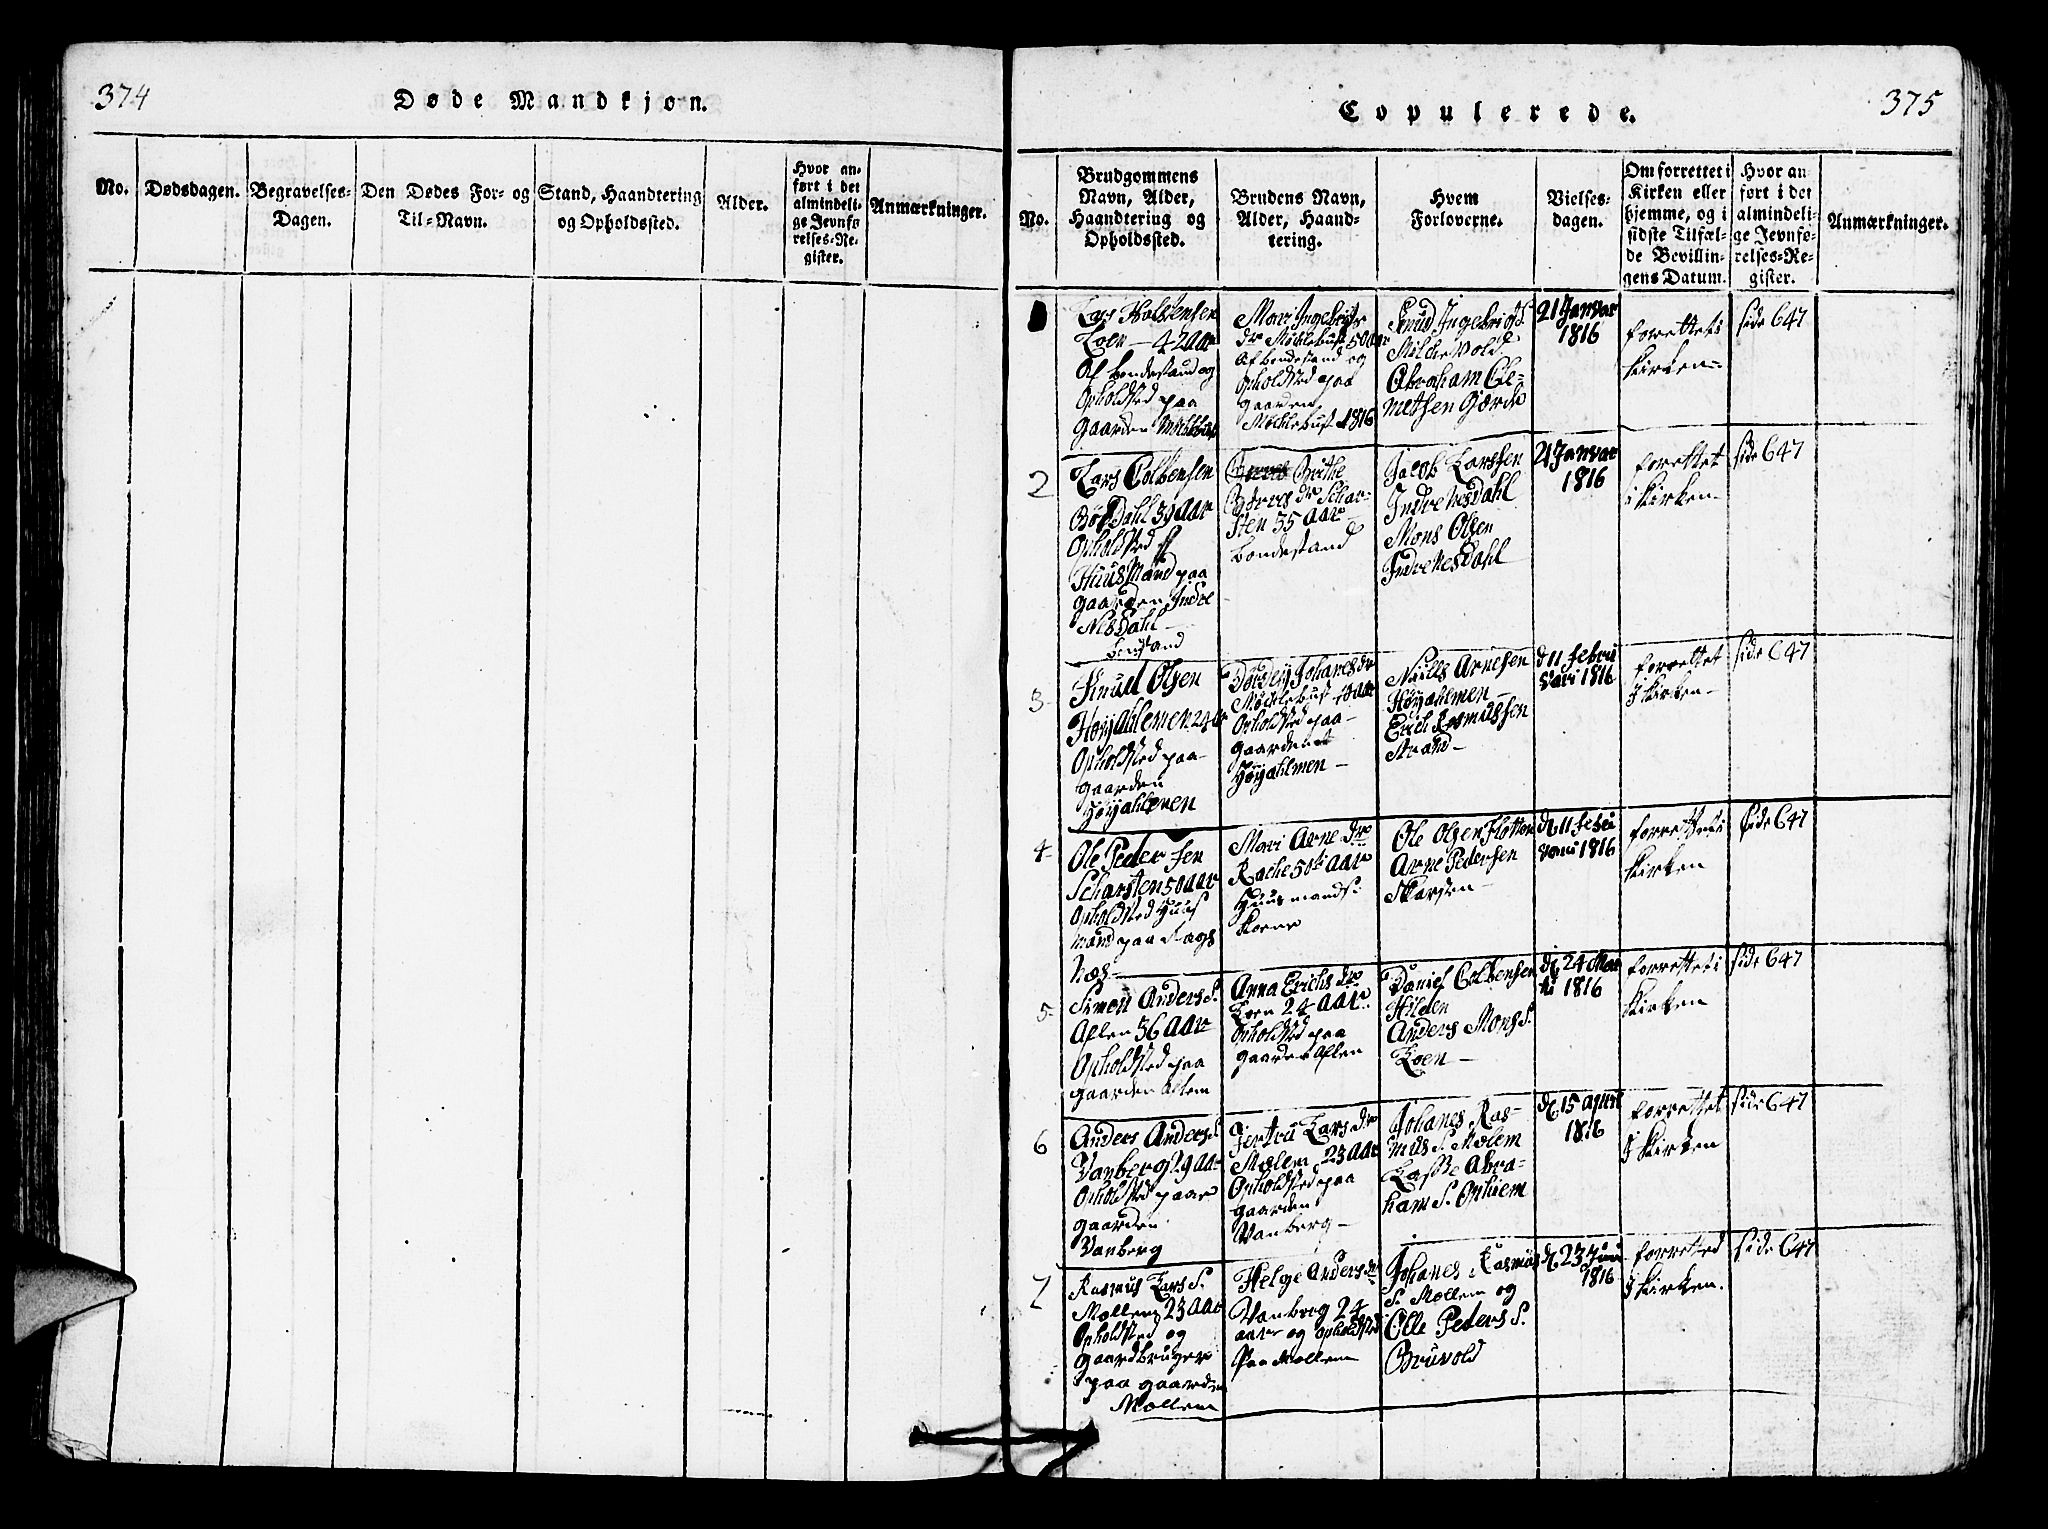 374
Døde Mandkjøn.
No.
Dødsdagen.
Begravelses-
Dagen.
Den Dødes For- og
Til-Navn.
Stand, Haandtering
og Opholdssted.
Alder.
Hvor an-
ført i det
almindeli-
ge Jevnfø
relses-Re-
gister.
Anmærkninger.
Copulerede.
375
No.
Brudgommens
Navn, Alder,
Haandtering og
Opholdssted.
Brudens Navn,
Alder, Haand-
tering.
Hvem
Forloverne.
Vielses-
dagen.
Om forrettet i
Kirken eller
hjemme, og i
sidste Tilfæl-
de Bevillin-
gens Datum.
Hvor an
ført i det
almindeli-
ge Jevnfø-
relses-Re-
gister.
Anmærkninger.
Lars
Loen - 42 Aar
Af bondestand og
Opholdsted paa
gaarden
Mari Ingebrigts
dr Möcklebust 50 Aar
Af bondestand og
Opholdsted paa
gaarden
Möcklebust 1816
Knud Ingebrigt S.
Abraham Cle-
metsen Gjerde
21 Janvar
1816
forrettet i
kirken
side 647
2
Lars Colbensen
Bødahl 39 Aar
Opholdsted
Huusmand paa
gaarden Indre
Nesdahl
Grithe
Anders dr Schar-
sten 55 Aar
bondestand
Jacob Larssen
Indre Nesdahl
Mons Olsen
Indre Nesdahl
21 Janvar
1816
forettet
i kirken
side 647
3
Knud Olsen
Høyahlmen 24 Aar
Opholdsted paa
gaarden
Høyahlmen
Johanes dr
Möcklebust
Opholdsted paa
gaarden
Høyahlmen
Niels Arnesen
Høyahlmen
Erich Rasmussen
Strand
d 11 febru
vari 1816
forrettet
I kirken
side 647
4
Ole Peder sen
Scharsten 50 Aar
Opholdsted Huus
mand paa Rags
Næs
Mari Arne dr
Rache 50ti Aar
Huusmands
kone
Ole Olsen Flotten
Arne Pedersen
Skarsten
d. 11 febr
vari 1816
forrettet i
kirken
side 647
5
Simon Anders S.
Aflen 36 Aar
Opholdsted paa
gaarden Aflem
Anna Erichs dr
Loen 24 Aar
Opholdsted paa
gaarden Aflen
Daniel Colbensen
Hilden
Anders Mons S.
Loen
d. 24 Mar
ti 1816
forrettet i
kirken
side 647
6
Anders Anders S.
Vanberg 29 Aar
Opholdsted paa
gaarden
Vanberg
Jertru Lars dr
Mølem 23 Aar
Opholdsted paa
gaarden
Vanberg
Johanes Ras-
mus S. Mølem
Lasse Abra-
ham S. Ophiem
d. 15 April
1816
forrettet
I kirken
side 647
7
Rasmus Lars S.
Møllem 23 Aar
Opholdsted og
gaardbruger
paa gaarden
Møllem
Helge Anders dr
Vanberg 24
aar og opholdsted
Paa Møllem
Johanes Rasmus
S. Møllem og
Olle Peders S.
Bruvold
d. 23 Juni
1816
forretted
I kirken.
side 647